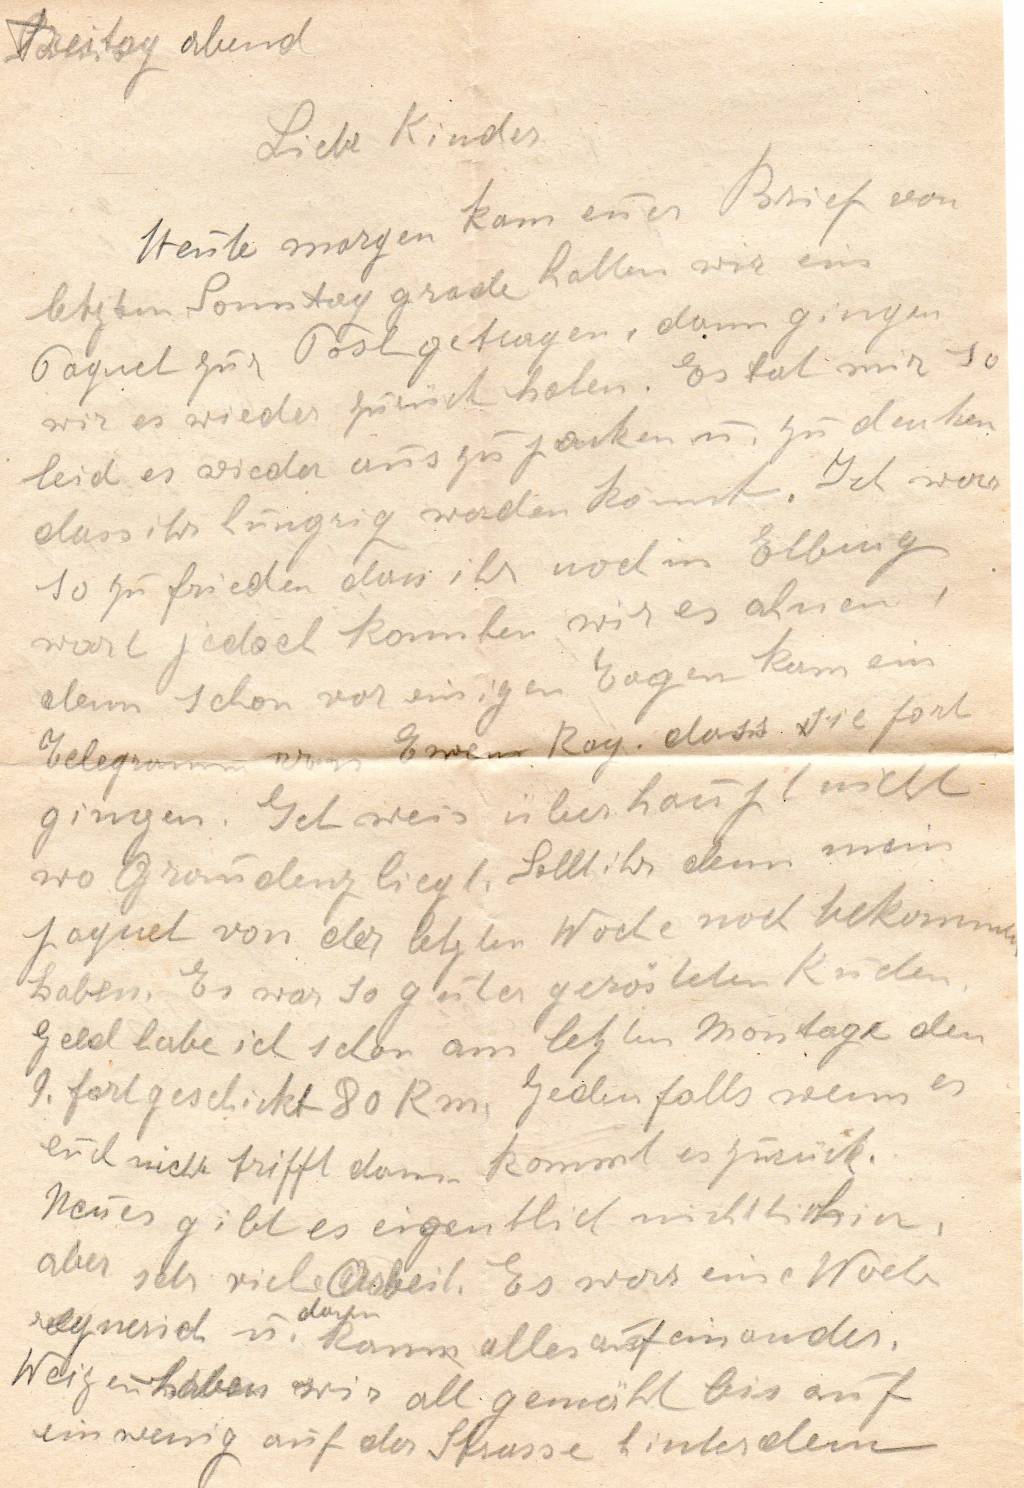 Freitag abend
Liebe Kinder
Heute morgen kam euer Brief von
letzten Sonntag grade hatten wir ein
Paquet zur Post getragen, dann gingen
wir es wieder zurück holen. Es tat mir so
leid es wieder aus zu packen u. zu denken
dass ihr hungrig werden könnt. Ich war
so zufrieden dass ihr noch in Elbing
wart jedoch konnten wir es ahnen,
denn schon vor einigen Tagen kam ein
Telegramm von Ray. dass sie fort
gingen. Ich weis überhaupt nicht
wo Graudenz liegt. Sollt ihr denn mein
paquet von der letzten Woche noch bekommen
haben. Es war so guter gerösteten Kuchen.
Geld habe ich schon am letzten Montage den
9. fortgeschickt 80 Rm. Jedenfalls wenn es
euch nicht trifft dann kommt es zurück.
Neues gibt es eigentlich nicht hier,
aber sehr viele Arbeit. Es war eine Woche
regnerich u. dann kamm alles auf einander.
Weizen haben wir all gemäht bis auf
ein wenig auf der Strasse hinter dem